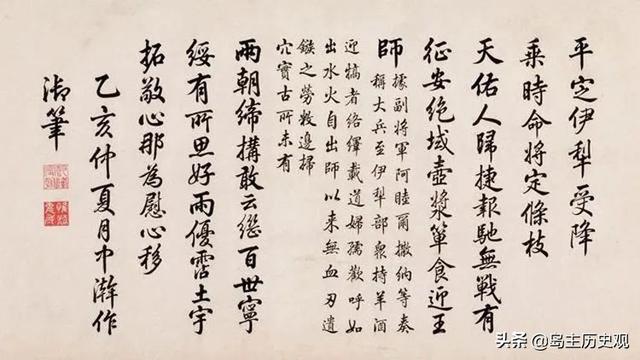 平定伊犁受降
乘時命將定條枝
天佑人歸捷報馳無戰有
征安絕域壺漿簞食迎王
師
據副將軍阿睦爾撒納等奏
稱大兵至伊犁部衆持羊酒
迎犒者絡繹載道婦孺歡呼如
出水火自出師以來無血刃遺
鏃之勞敉邊掃
穴實古所未有
兩朝締構敢云繼百世寧
綏有所思好雨優霑土宇
拓敬心那為慰心移
乙亥仲夏月中澣作
御筆
头条 @岛主历史观